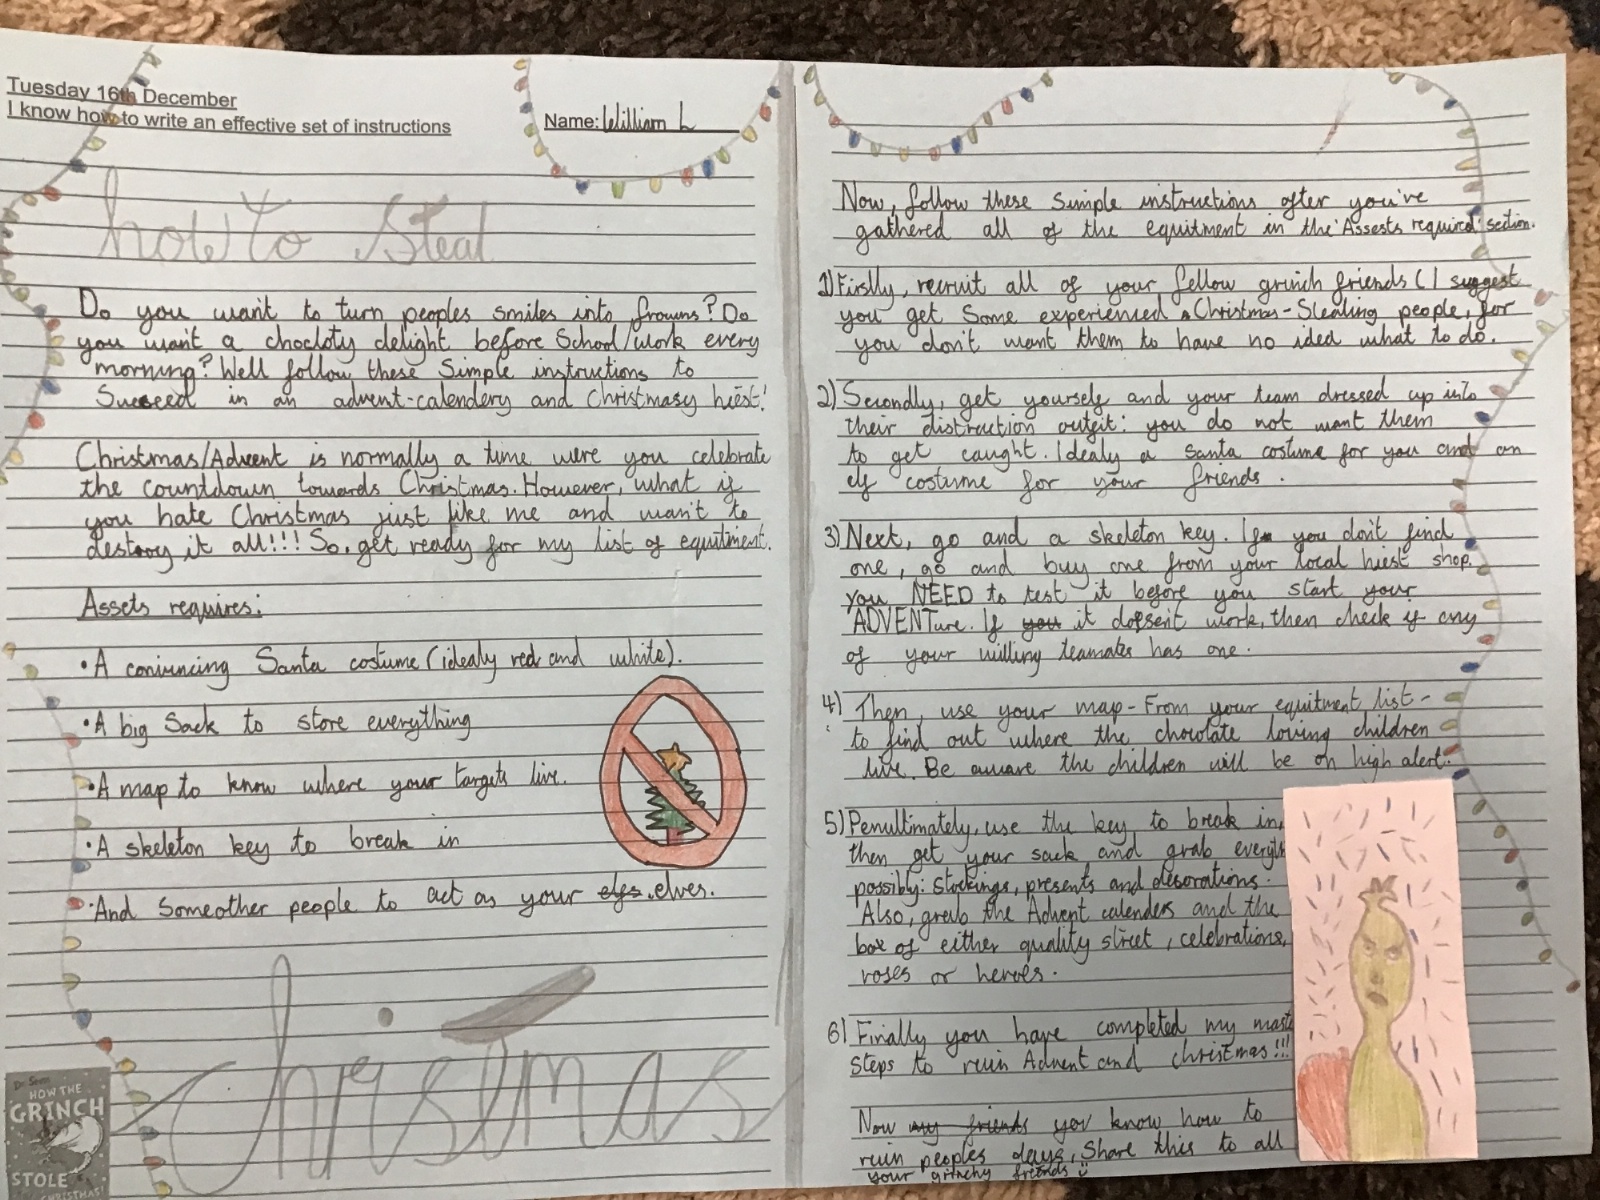 Tuesday 16th December
I know how to write an effective set of instructions
Name: William L
how to Steal
Do you want to turn peoples smiles into frowns? Do
you want a chocloty delight before School/work every
morning? Well follow these Simple instructions to
Succeed in an advent-calendery and christmasy hiest!
Christmas/Advent is normally a time were you celebrate
the countdown towards Christmas. However, what if
you hate Christmas just like me and want to
destroy it all!!! So, get ready for my list of equitment.
Assets requires:
• A convincing Santa costume (idealy red and white).
• A big Sack to store everything
• A map to know where your targets live.
• A skeleton key to break in
• And Someother people to act as your elfs. elves.
christmas
Dr. Seuss
HOW THE
GRINCH
STOLE
CHRISTMAS!
Now, follow these simple instructions after you've
gathered all of the equitment in the 'Assests required' section.
1) Firstly, recruit all of your fellow grinch friends (I suggest
you get Some experienced Christmas-Stealing people, for
you don't want them to have no idea what to do.
2) Secondly, get yourself and your team dressed up into
their distraction outfit: you do not want them
to get caught. Idealy a santa costume for you and an
elf costume for your friends.
3) Next, go and a skeleton key. If you don't find
one, go and buy one from your local hiest shop.
you NEED to test it before you start your
ADVENTure. If you it doesen't work, then check if any
of your willing teamates has one.
4) Then, use your map - From your equitment list -
to find out where the chocolate loving children
live. Be aware the children will be on high alert.
5) Penultimately, use the key to break in,
then get your sack and grab everyth
possibly: stockings, presents and desorations.
Also, grab the Advent calenders and the
box of either quality street, celebrations,
roses or heroes.
6) Finally you have completed my mast
steps to ruin Advent and christmas!!!
Now my friends you know how to
ruin peoples days, Share this to all
your grinchy friends